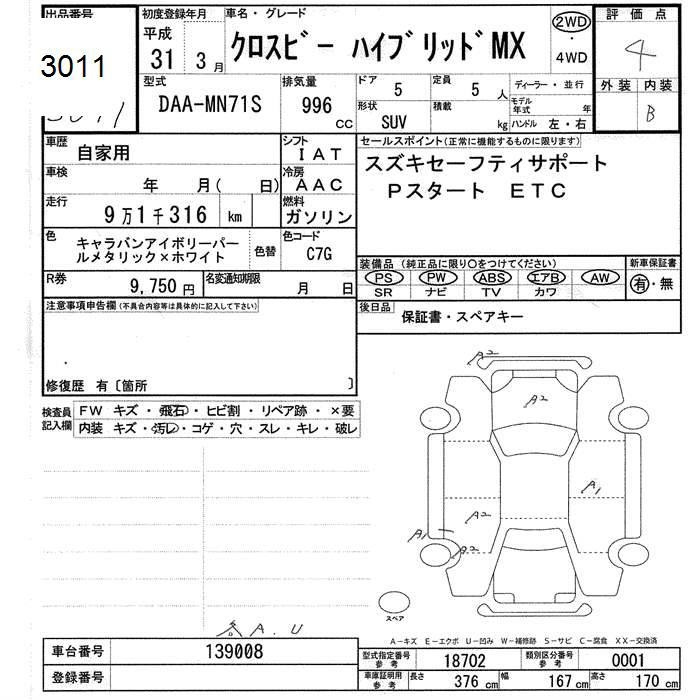 出品番号
3011
初度登録年月
平成
31 3月
車名・グレード
クロスビー ハイブリッドMX
2WD
・
4WD
評価点
4
外装 内装
B
型式
DAA-MN71S
排気量
996
cc
ドア
5
定員
5 人
ディーラー・並行
形状
SUV
積載
kg
モデル
年式
年
ハンドル 左・右
車歴
自家用
シフト
IAT
車検
年 月( 日)
冷房
AAC
走行
9万1千316 km
燃料
ガソリン
色
キャラバンアイボリーパー
ルメタリック×ホワイト
色替
色コード
C7G
R券
9,750 円
名変通知期限
月 日
セールスポイント(正常に機能するものに限ります)
スズキセーフティサポート
Pスタート ETC
装備品(純正品に限り○をつけてください)
PS PW ABS エアB AW
SR ナビ TV カワ
新車保証書
有・無
後日品
保証書・スペアキー
注意事項申告欄(不具合内容等は具体的に記入して下さい)
修復歴 有〔箇所 〕
検査員
記入欄
FW キズ・飛石・ヒビ割・リペア跡・×要
内装 キズ・汚レ・コゲ・穴・スレ・キレ・破レ
A2
A2
A1
A2
A1
A2
スペア
A.U
A-キズ E-エクボ U-凹み W-補修跡 S-サビ C-腐食 XX-交換済
車台番号
139008
登録番号
型式指定番号
参考
18702
類別区分番号
参考
0001
車庫証明用
参考
長さ
376 cm
幅
167 cm
高さ
170 cm